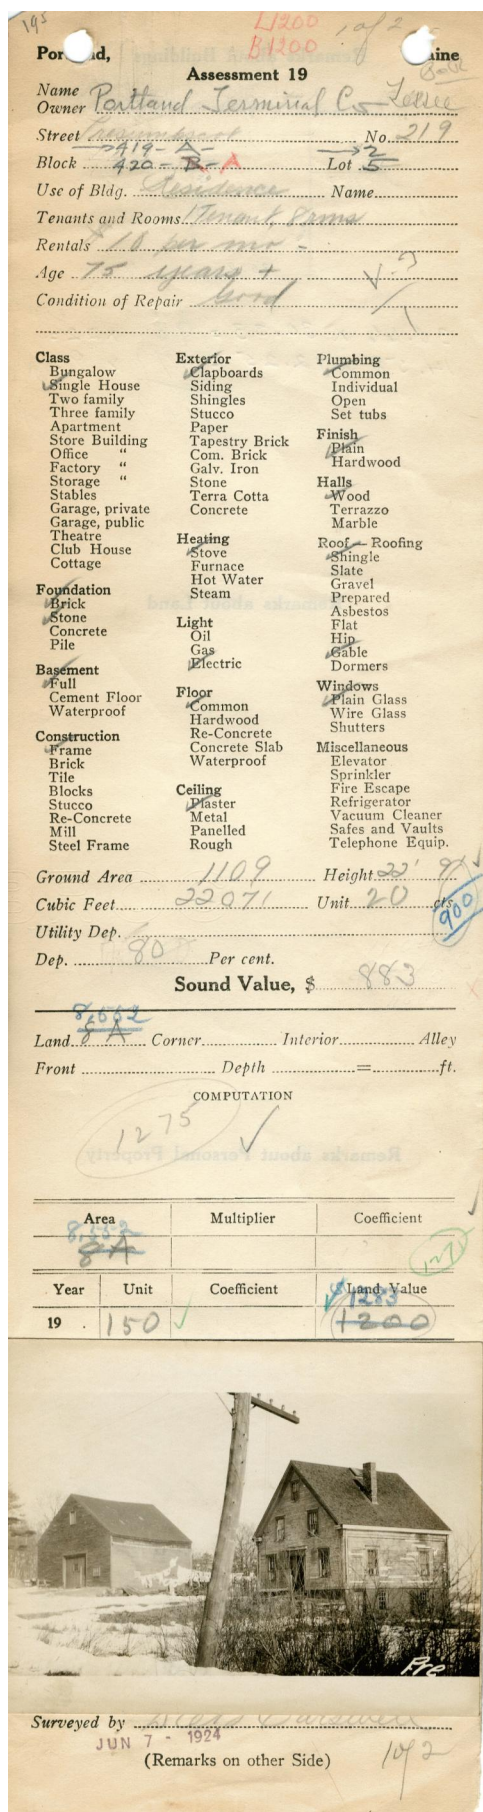 195 L1200 1 of 2
B1200
Portland, Maine
Assessment 19
Name
Owner Portland Terminal Co Lessee
Street No. 219
→419-A- →2
Block 420-B-A Lot 5
Use of Bldg. Residence Name
Tenants and Rooms 1 Tenant, 8 rms
Rentals $18 per mo -
Age 75 years +
Condition of Repair Good
Class
Bungalow
Single House
Two family
Three family
Apartment
Store Building
Office "
Factory "
Storage "
Stables
Garage, private
Garage, public
Theatre
Club House
Cottage
Foundation
Brick
Stone
Concrete
Pile
Basement
Full
Cement Floor
Waterproof
Construction
Frame
Brick
Tile
Blocks
Stucco
Re-Concrete
Mill
Steel Frame
Exterior
Clapboards
Siding
Shingles
Stucco
Paper
Tapestry Brick
Com. Brick
Galv. Iron
Stone
Terra Cotta
Concrete
Heating
Stove
Furnace
Hot Water
Steam
Light
Oil
Gas
Electric
Floor
Common
Hardwood
Re-Concrete
Concrete Slab
Waterproof
Ceiling
Plaster
Metal
Panelled
Rough
Plumbing
Common
Individual
Open
Set tubs
Finish
Plain
Hardwood
Halls
Wood
Terrazzo
Marble
Roof — Roofing
Shingle
Slate
Gravel
Prepared
Asbestos
Flat
Hip
Gable
Dormers
Windows
Plain Glass
Wire Glass
Shutters
Miscellaneous
Elevator
Sprinkler
Fire Escape
Refrigerator
Vacuum Cleaner
Safes and Vaults
Telephone Equip.
Ground Area 1109 Height 22'
Cubic Feet 22071 Unit 20 cts.
900
Utility Dep.
Dep. 80 Per cent.
Sound Value, $ 883
8,552
Land 8 A Corner Interior Alley
Front Depth = ft.
COMPUTATION
1275
Area Multiplier Coefficient
8,552
8 A
Year Unit Coefficient Land Value
$1283
19 . 150 1200
Pre
Surveyed by
JUN 7 - 1924
(Remarks on other Side) 1 of 2